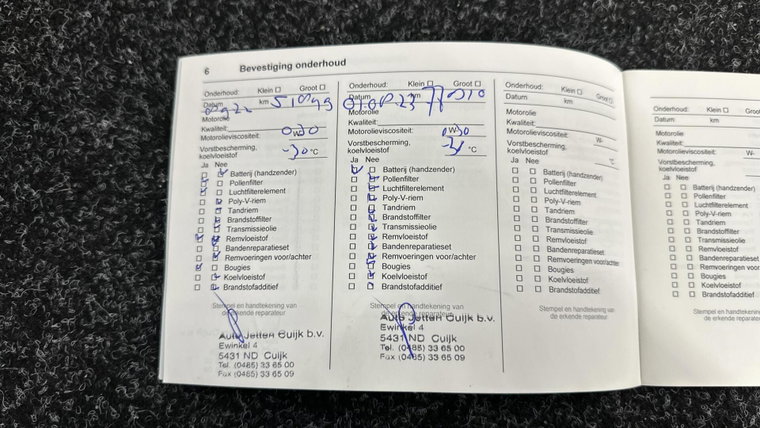 6 Bevestiging onderhoud
Onderhoud: Klein ☐ Groot ☐
Datum km
Motorolie
Kwaliteit:
Motorolieviscositeit: 0W30
Vorstbescherming,
koelvloeistof -30 °C
Ja Nee
Batterij (handzender)
Pollenfilter
Luchtfilterelement
Poly-V-riem
Tandriem
Brandstoffilter
Transmissieolie
Remvloeistof
Bandenreparatieset
Remvoeringen voor/achter
Bougies
Koelvloeistof
Brandstofadditief
Stempel en handtekening van
de erkende reparateur
Auto Jetten Cuijk b.v.
Ewinkel 4
5431 ND Cuijk
Tel. (0485) 33 65 00
Fax (0485) 33 65 09
Onderhoud: Klein ☐ Groot ☐
Datum km
Motorolie
Kwaliteit:
Motorolieviscositeit: 0W30
Vorstbescherming,
koelvloeistof °C
Ja Nee
Batterij (handzender)
Pollenfilter
Luchtfilterelement
Poly-V-riem
Tandriem
Brandstoffilter
Transmissieolie
Remvloeistof
Bandenreparatieset
Remvoeringen voor/achter
Bougies
Koelvloeistof
Brandstofadditief
Stempel en handtekening van
de erkende reparateur
Auto Jetten Cuijk b.v.
Ewinkel 4
5431 ND Cuijk
Tel. (0485) 33 65 00
Fax (0485) 33 65 09
Onderhoud: Klein ☐ Groot ☐
Datum km
Motorolie
Kwaliteit:
Motorolieviscositeit: W-
Vorstbescherming,
koelvloeistof °C
Ja Nee
Batterij (handzender)
Pollenfilter
Luchtfilterelement
Poly-V-riem
Tandriem
Brandstoffilter
Transmissieolie
Remvloeistof
Bandenreparatieset
Remvoeringen voor/achter
Bougies
Koelvloeistof
Brandstofadditief
Stempel en handtekening van
de erkende reparateur
Onderhoud: Klein ☐ Groot ☐
Datum km
Motorolie
Kwaliteit:
Motorolieviscositeit: W-
Vorstbescherming,
koelvloeistof
Ja Nee
Batterij (handzender)
Pollenfilter
Luchtfilterelement
Poly-V-riem
Tandriem
Brandstoffilter
Transmissieolie
Remvloeistof
Bandenreparatieset
Remvoeringen voor/achter
Bougies
Koelvloeistof
Brandstofadditief
Stempel en handtekening
de erkende reparateur